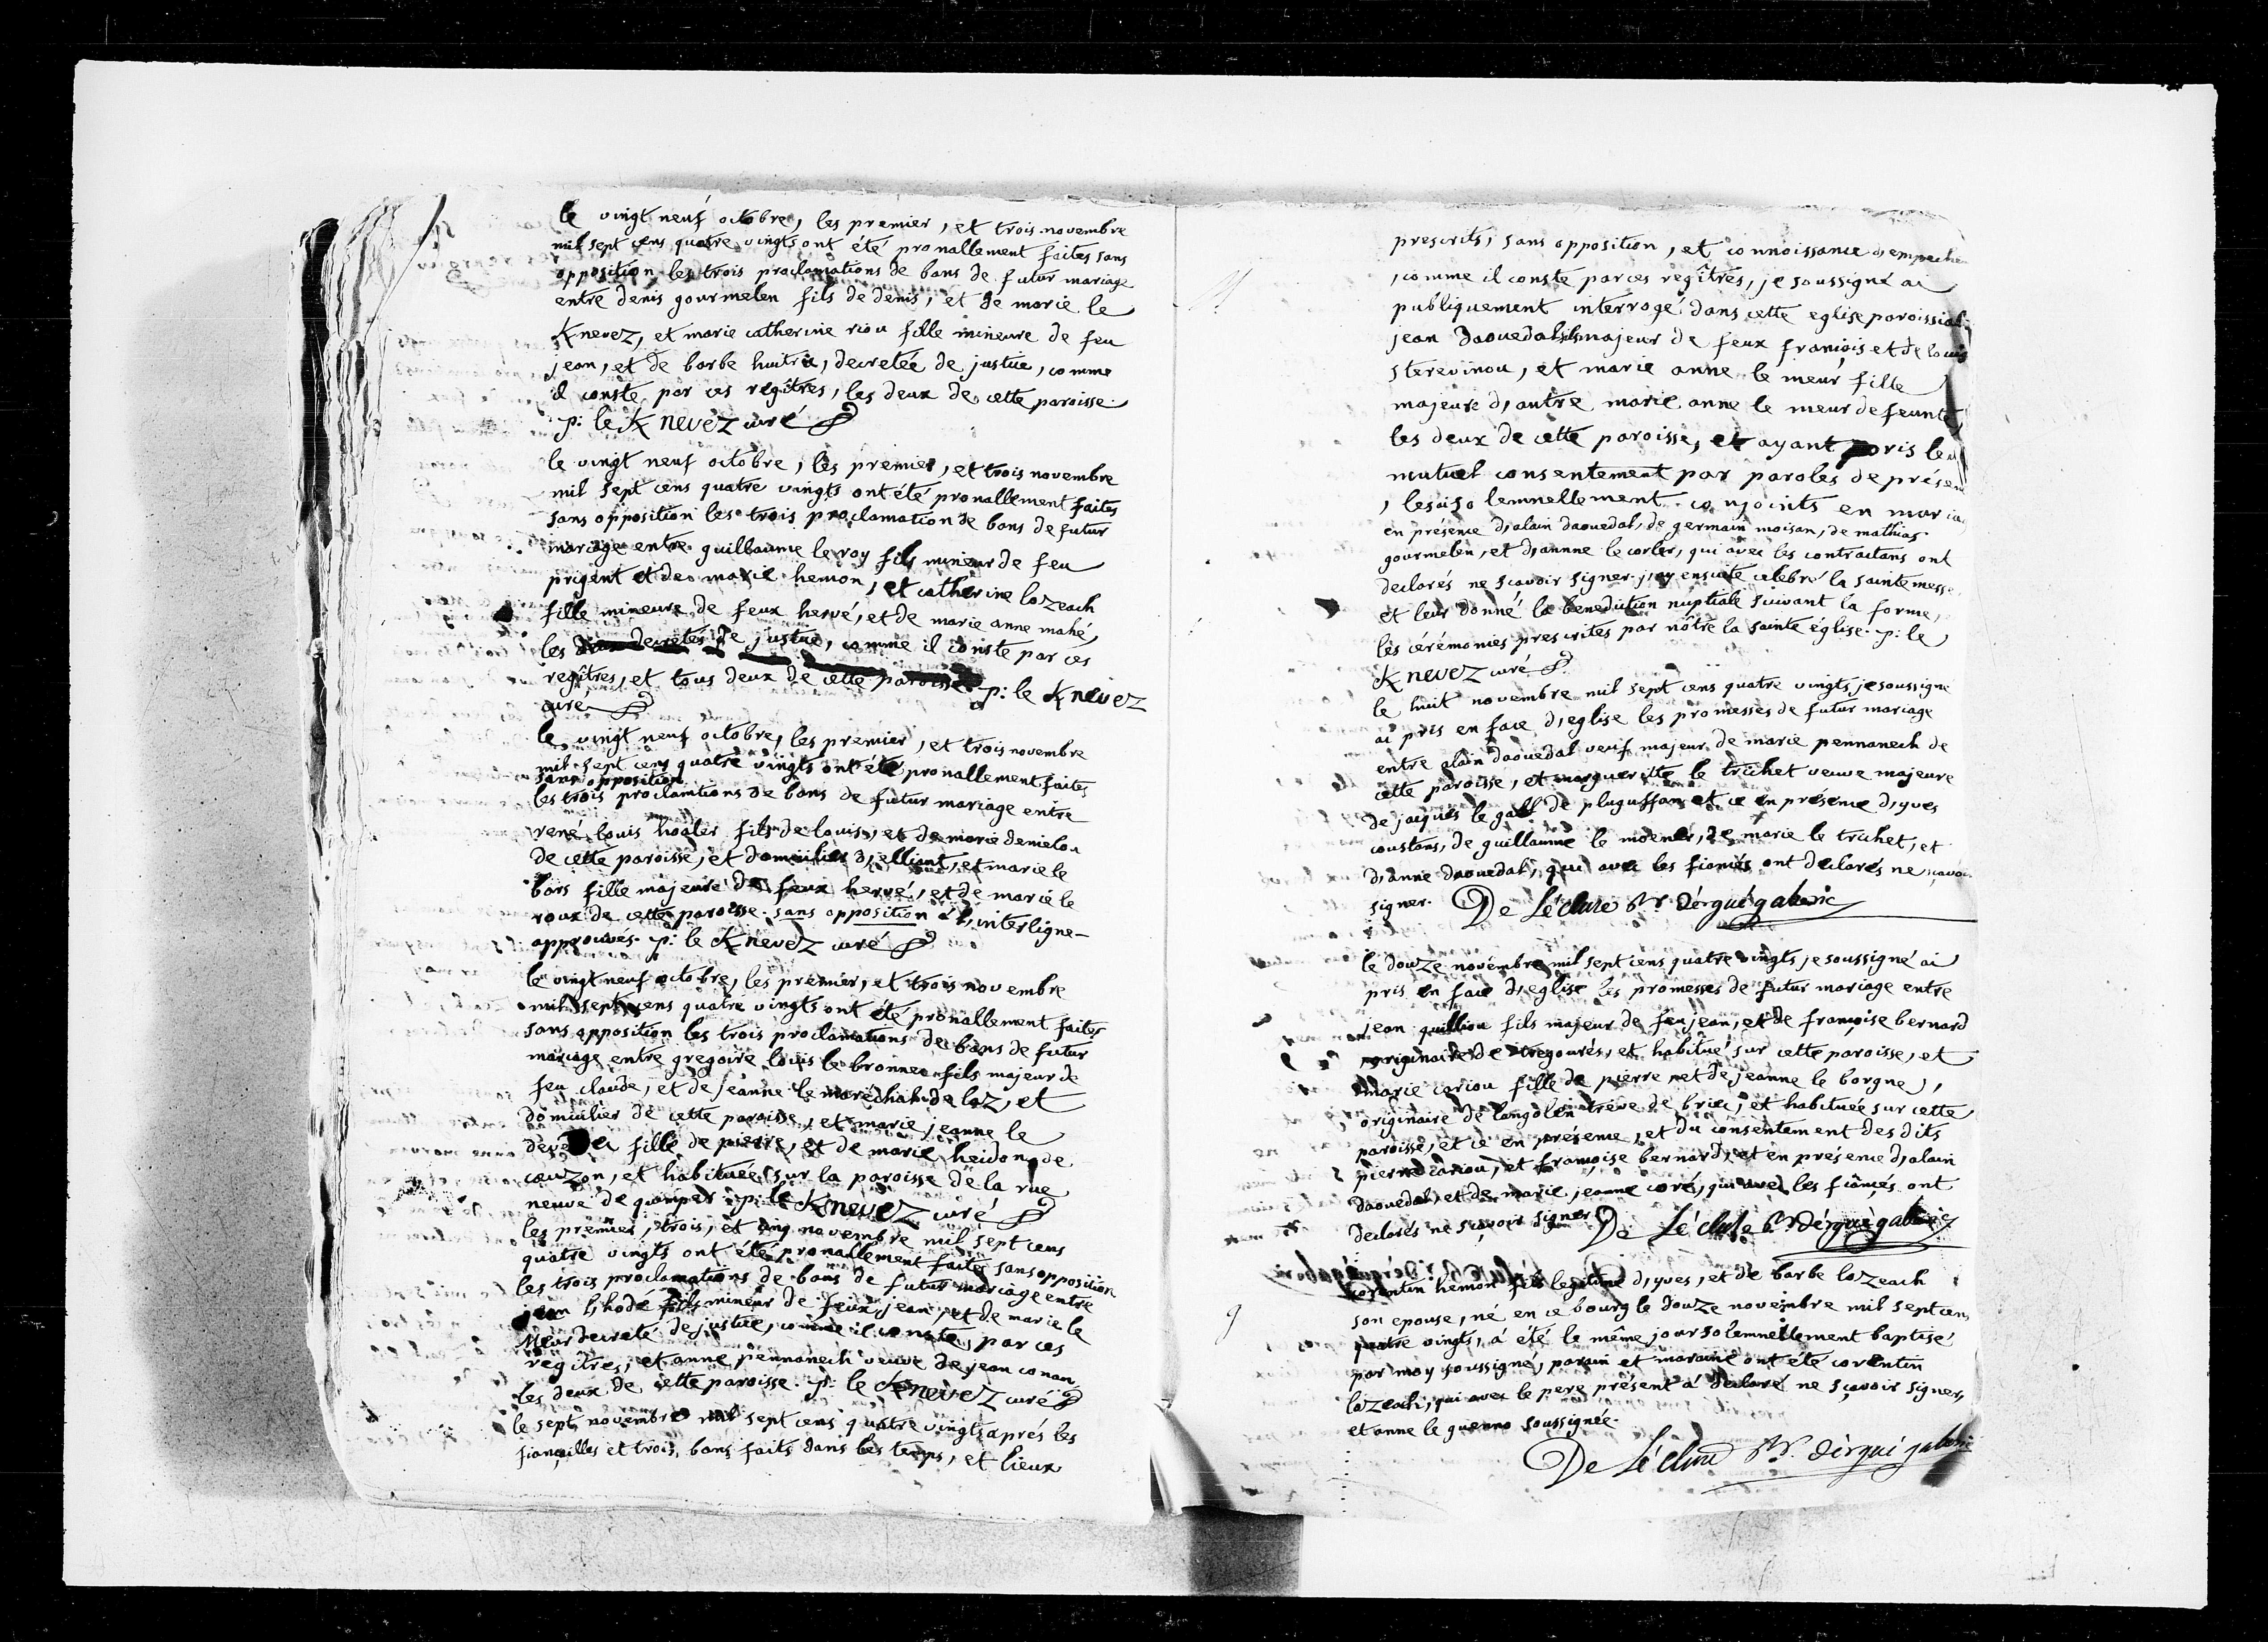 le vingt neuf octobre, les premier, et trois novembre
mil sept cens quatre vingts ont été pronallement faites sans
opposition les trois proclamations de bans de futur mariage
entre denis gourmelen fils de denis, et de marie le
Knevez, et marie catherine riou fille mineure de feu
jean, et de barbe huitric, decretée de justice, comme
il conste par ces regîtres, les deux de cette paroisse.
p: le Knevez curé
le vingt neuf octobre, les premier, et trois novembre
mil sept cens quatre vingts ont été pronallement faites
sans opposition les trois proclamation de bans de futur
mariage entre guillaume le roy fils mineur de feu
prigent et de marie hemon, et catherine lozeach
fille mineure de feux hervé, et de marie anne mahé,
les deux decretés de justice, comme il conste par ces
regîtres, et tous deux de cette paroisse p: le Knevez
curé
le vingt neuf octobre, les premier, et trois novembre
mil sept cens quatre vingts ont été pronallement faites
sans opposition
les trois proclamtions de bans de futur mariage entre
rené louis hoaler fils de louis, et de marie denielou
de cette paroisse, et domicilier d'elliant, et marie le
bors fille majeure de feux hervé, et de marie le
roux de cette paroisse. sans opposition à l'interligne
approuvés. p: le Knevez curé
le vingt neuf octobre, les premier, et trois novembre
mil sept cens quatre vingts ont été pronallement faites
sans opposition les trois proclamations de bans de futur
mariage entre gregoire louis le bronnec fils majeur de
feu claude, et de jeanne le maréchal de laz, et
domicilier de cette paroisse, et marie jeanne le
fille de pierre, et de marie heidon de
cauzon, et habituée sur la paroisse de la rue
neuve de quimper p: le Knevez curé
les premier, trois, et cinq novembre mil sept cens
quatre vingts ont été pronallement faites sans opposition
les trois proclamations de bans de futur mariage entre
jean l'hodé fils mineur de feux jean, et de marie le
Meur decreté de justice, comme il conste par ces
regîtres, et anne pennanech veuve de jean conan
les deux de cette paroisse. p: le Knevez curé
le sept novembre mil sept cens quatre vingts aprés les
fiançailles et trois bans faits dans les temps, et lieux
prescrits, sans opposition, et connoissance d'empeche
, comme il conste par ces regîtres, je soussigné ai
publiquement interrogé dans cette eglise paroissial
jean daouedal fils majeur de feux francois et de louis
sterevinou, et marie anne le meur fille
majeure d'autre marie anne le meur defeunte,
les deux de cette paroisse, et ayant pris leu
mutuel consentement par paroles de présen
, les ai solemnellement conjoints en maria
en présence d'alain daouedal, de germain moisan, de mathias
gourmelen, et d'annne le corler, qui avec les contractans ont
declarés ne scavoir signer. j'ay ensuite celebré la sainte messe
et leur donné la benediction nuptiale suivant la forme,
les cérémonies prescrites par nôtre la sainte église. p: le
Knevez curé
le huit novembre mil sept cens quatre vingts, je soussigne
ai pris en face d'eglise les promesses de futur mariage
entre alain daouedal veuf majeur de marie pennanech de
cette paroisse, et marguerite le trichet veuve majeure
de jacques le gall de pluguffan et ce en présence d'yves
coustans, de guillaume le moener, de marie le trichet, et
d'anne daouedal, qui avec les fiancés ont declarés ne scavoi
signer. De Léclure Rr. dérguégaberic
le douze novembre mil sept cens quatre vingts je soussigné ai
pris en face d'eglise les promesses de futur mariage entre
jean quilliou fils majeur de feu jean, et de françoise bernard
originaire de tregourés, et habitué sur cette paroisse, et
marie cariou fille de pierre et de jeanne le borgne,
originaire de langolen treve de briec, et habituée sur cette
paroisse, et ce en présence, et du consentement des dits
pierre cariou, et françoise bernard, et en présence d'alain
daouedal, et de marie jeanne coré, qui avec les fiancés ont
declarés ne scavoir signer De Léclure Rr dérguégaberic
corentin hémon fils legitime d'yves, et de barbe lozeach
son epouse, né en ce bourg le douze novembre mil sept cen
quatre vingts, á été le même jour solemnellement baptisé
par moy soussigné, parain et maraine ont été corentin
lozeach, qui avec le pere présent á declaré ne scavoir signer,
et anne le guenno soussignée.
De Léclure Rr. dérguégaberic